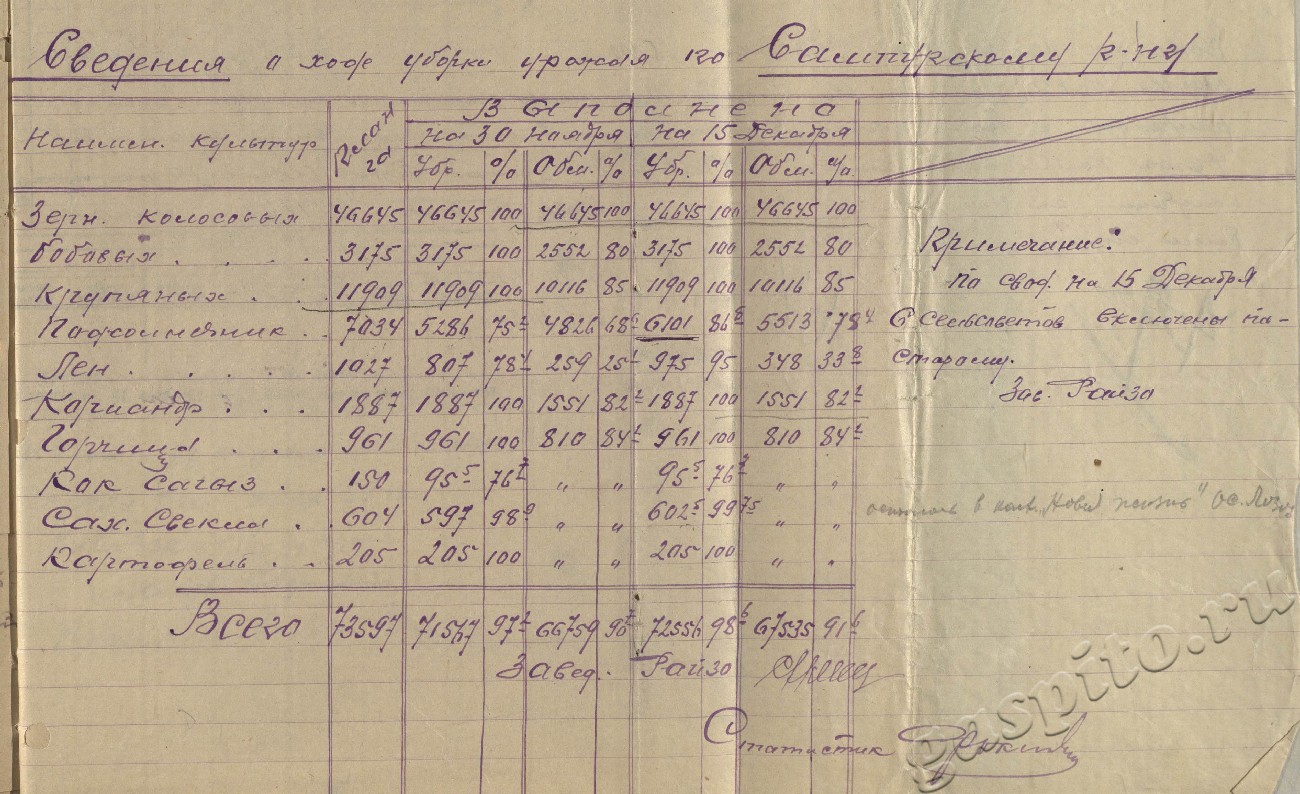 Сведения о ходе уборки урожая по Сампурскому р-ну
Наимен. культур га Выполнено
на 30 ноября на 15 Декабря
Убр. % Обм. % Убр. % Обм. %
Зерн. колосовых 46645 46645 100 46645 100 46645 100 46645 100
Бобовых . . . . 3175 3175 100 2552 80 3175 100 2552 80
Крупяных . . 11909 11909 100 10116 85 11909 100 10116 85
Подсолнечник . 7034 5286 75 4826 68 6101 86 5513 78
Лен . . . . . 1027 807 78 259 25 975 95 348 33
Кориандр . . . 1887 1887 100 1551 82 1887 100 1551 82
Горчица . . . 961 961 100 810 84 961 100 810 84
Кок Сагыз . . 150 95⁵ 76 „ „ 95⁵ 76 „ „
Сах. Свекла . 604 597 98 „ „ 602⁵ 99⁷⁵ „ „
Картофель . . 205 205 100 „ „ 205 100 „ „
Всего 73597 71567 97 66759 90 72556 98⁶ 67535 91⁶
Примечание:
по свод. на 15 Декабря
6 сельсоветов включены по-
старому.
Зав. Райзо
в колх. „Новая жизнь"
Завед. Райзо
Статистик
gaspito.ru